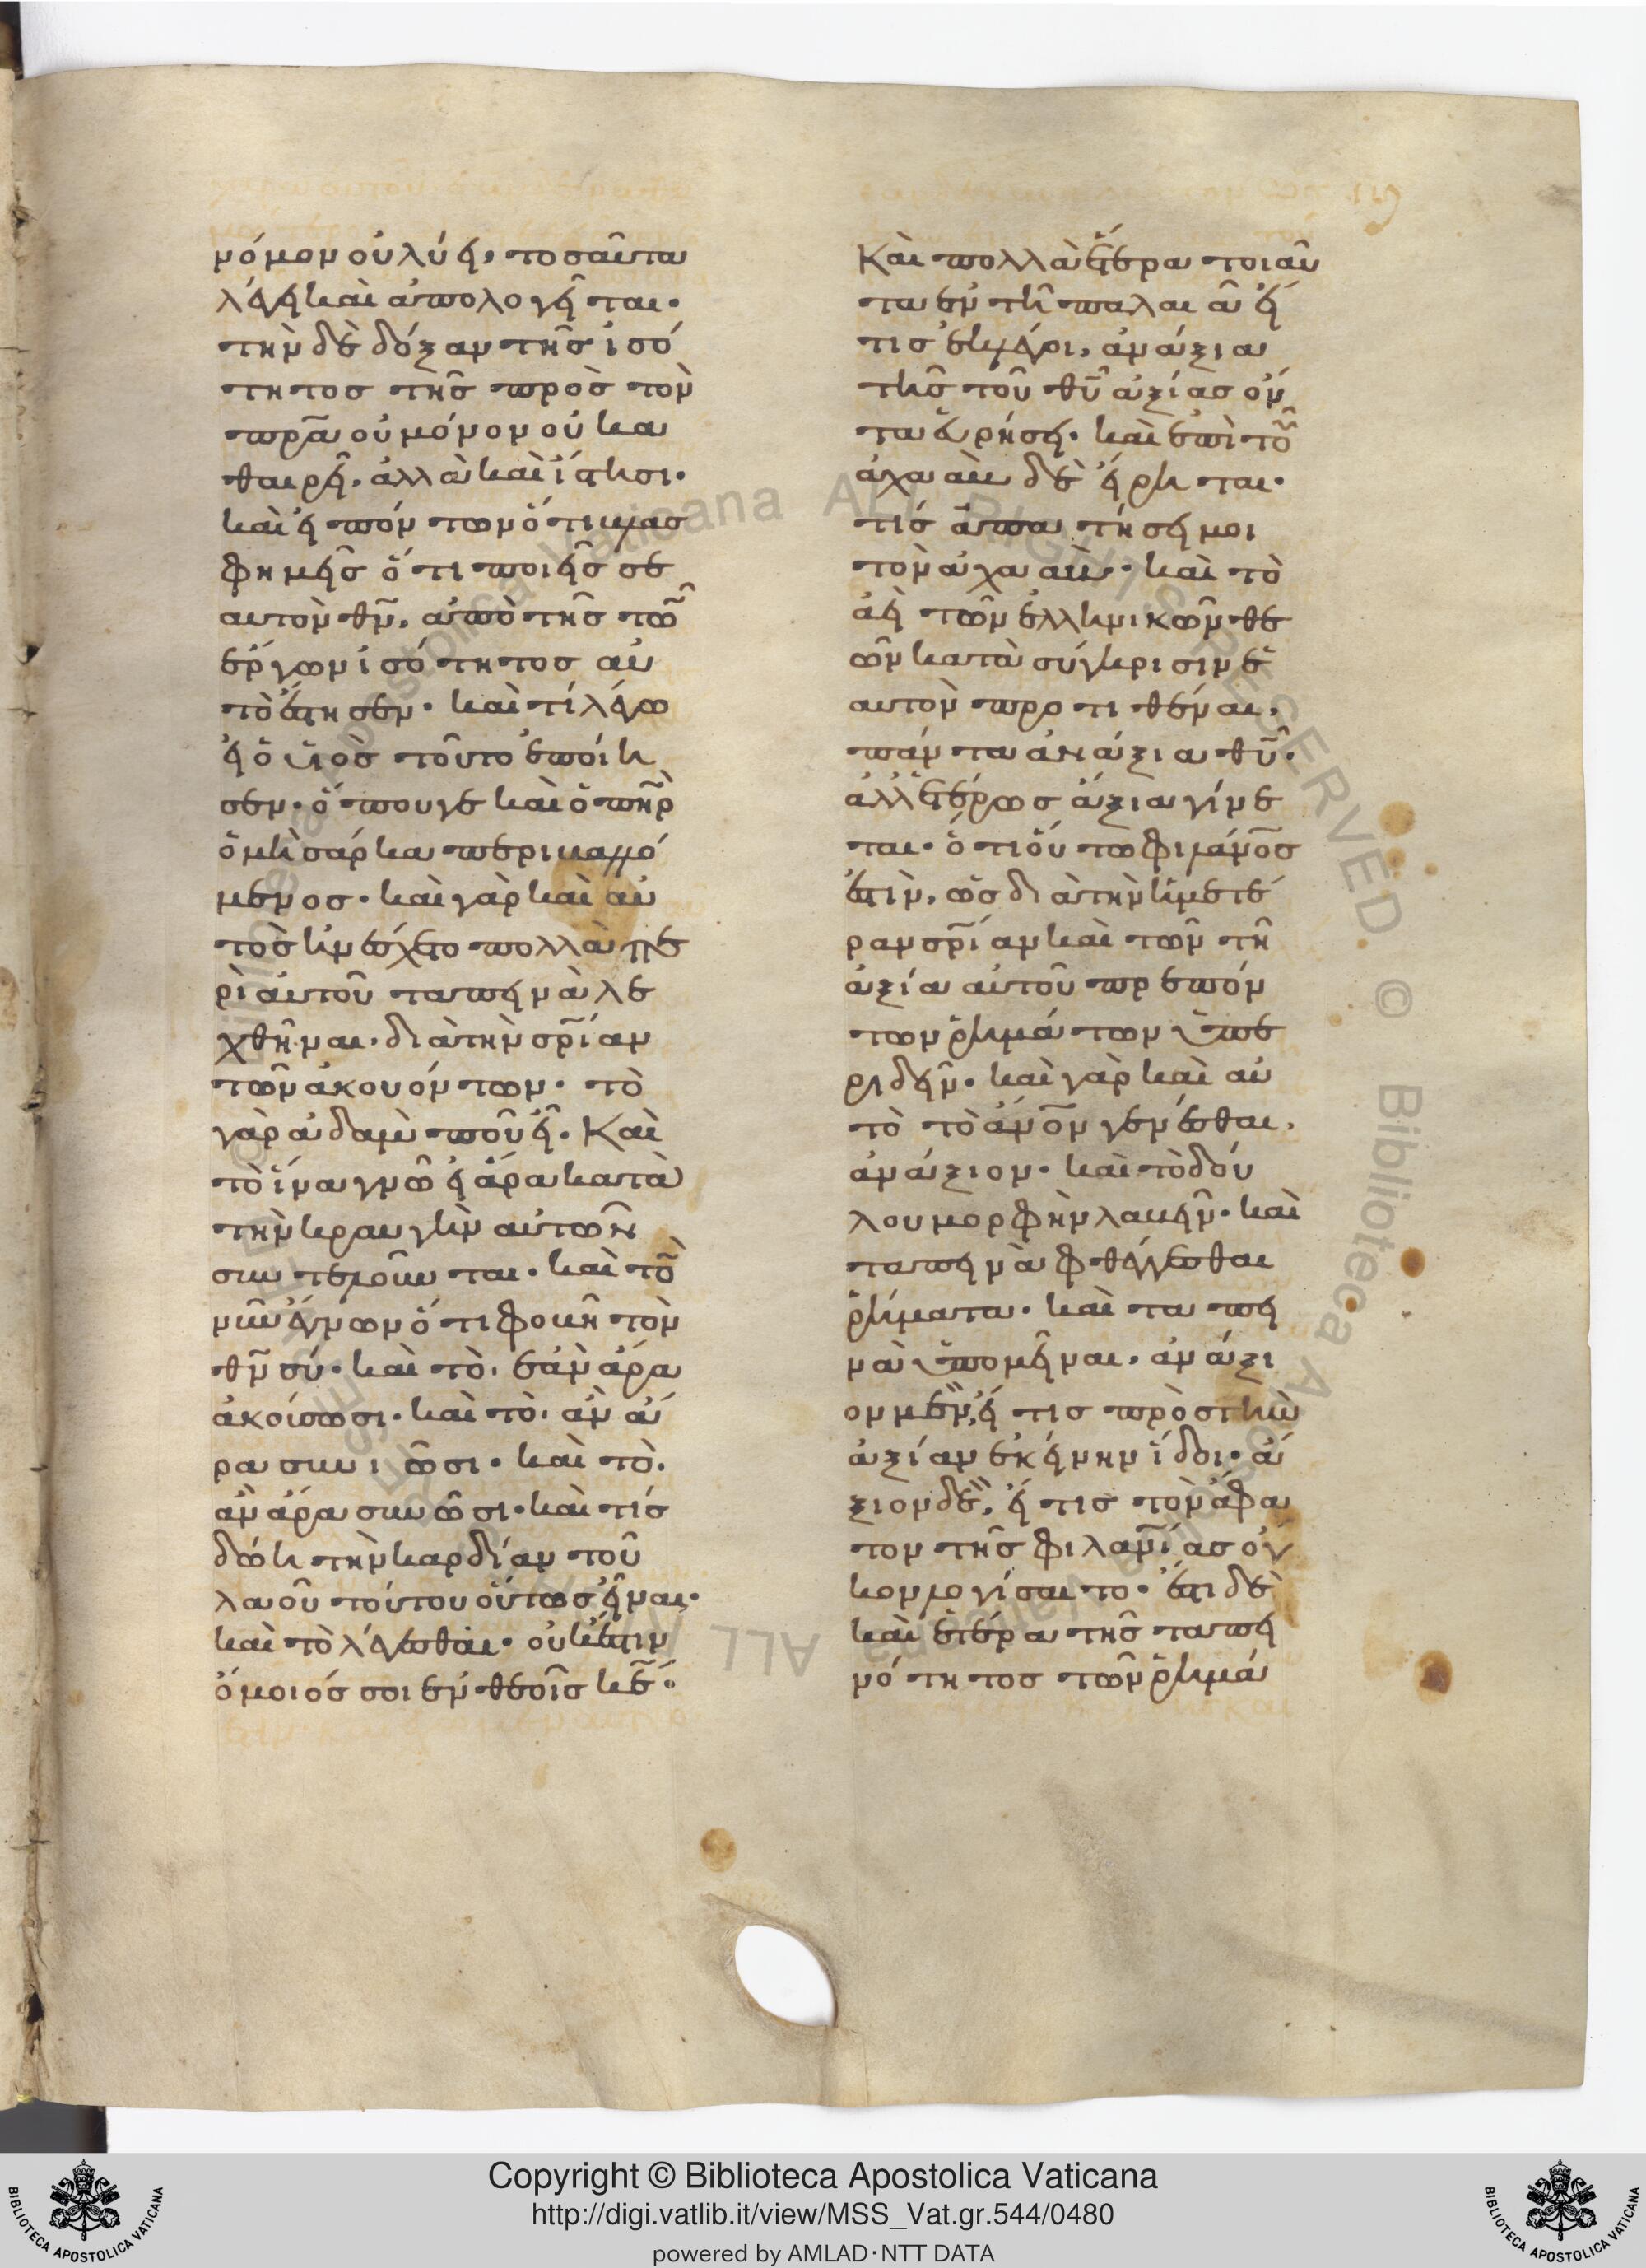 νόμον οὐ λύει, τοσαῦτα
λέγει καὶ ἀπολογεῖται·
τὴν δὲ δόξαν τῆς ἰσό
τητος τῆς πρὸς τὸν
πρ̅α οὐ μόνον οὐ κα
θαιρεῖ· ἀλλὰ καὶ ἵστησι·
καὶ εἰπόντων ὅτι βλασ
φημεῖς ὅτι ποιεῖς σε
αυτὸν θν̅, ἀπὸ τῆς τῶ
ἔργων ἰσότητος αὐ
τὸ ἔστησεν· καὶ τί λέγω
εἰ ὁ υἱὸς τοῦτο ἐποίη
σεν· ὅπουγε καὶ ὁ πη̅ρ
ὁ μὴ σάρκα περιβαλλό
μενος· καὶ γὰρ καὶ αὐ
τὸς ἠνέσχετο πολλὰ πε
ρὶ αὐτοῦ ταπεινὰ λε
χθῆναι, διὰ τὴν σρ̅ίαν
τῶν ἀκουόντων· τὸ
γὰρ ἀδὰμ ποῦ εἶ· Καὶ
τὸ ἵνα γνῶ εἰ ἄρα κατὰ
τὴν κραυγὴν αὐτῶν
συντελοῦνται· καὶ τὸ
νῦν ἔγνων ὅτι φοβῆ τὸν
θν̅ σύ· καὶ τὸ, ἐὰν ἄρα
ἀκούσωσι· καὶ τὸ, ἂν ἄ
ρα συνιῶσι· καὶ τὸ,
ἂν ἄρα συνῶσι· καὶ τίς
δώη τὴν καρδίαν τοῦ
λαοῦ τούτου οὕτως εἶναι·
καὶ τὸ λέγεσθαι· οὐκ ἔστιν
ὅμοιός σοι ἐν θεοῖς κε̅·
Καὶ πολλὰ ἕτερα τοιαῦ
τα ἐν τῆ παλαιᾶ εἴ
τις ἐκλέγοι, ἀνάξια
τῆς τοῦ θυ̅ ἀξίας ὄν
τα εὑρήσει· καὶ ἐπὶ τοῦ
ἀχαὰβ δὲ εἴρηται·
τίς ἀπατήσει μοι
τὸν ἀχαὰβ· καὶ τὸ
ἀεὶ τῶν ἑλληνικῶν θε
ῶν κατὰ σύγκρισιν ἑ
αυτὸν προτιθέναι,
πάντα ἀνάξια θυ̅·
ἀλλ' ἑτέρως ἄξια γίνε
ται· ὅτι οὕτω φιλάνο̅ς
ἐστὶν, ὡς διὰ τὴν ἡμετέ
ραν σρ̅ίαν καὶ τῶν τῆ
ἀξία αὐτοῦ πρεπόν
των ῥημάτων ὑπε
ριδεῖν· καὶ γὰρ καὶ αὐ
τὸ τὸ ἄνο̅ν γενέσθαι,
ἀνάξιον· καὶ τὸ δού
λου μορφὴν λαβεῖν· καὶ
ταπεινὰ φθέγγεσθαι
ῥήματα· καὶ ταπει
νὰ ὑπομεῖναι, ἀνάξι
ον μὲν, εἴ τις πρὸς τὴν
ἀξίαν ἐκείνην ἴδοι· ἄ
ξιον δὲ, εἴ τις τὸν ἄφα
τον τῆς φιλαν̅ίας ὄγ
κον λογίσαιτο· ἔστι δὲ
καὶ ἑτέρα τῆς ταπει
νότητος τῶν ῥημά
Copyright © Biblioteca Apostolica Vaticana
http://digi.vatlib.it/view/MSS_Vat.gr.544/0480
powered by AMLAD·NTT DATA